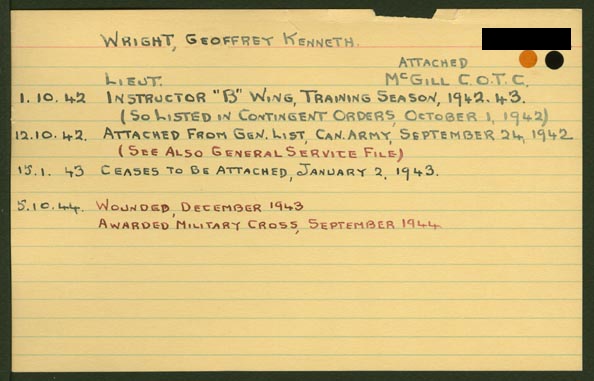 WRIGHT, GEOFFREY KENNETH.
ATTACHED
LIEUT. McGILL C.O.T.C.
1.10.42 INSTRUCTOR "B" WING, TRAINING SEASON, 1942.43.
(SO LISTED IN CONTINGENT ORDERS, OCTOBER 1, 1942)
12.10.42. ATTACHED FROM GEN. LIST, CAN. ARMY, SEPTEMBER 24, 1942
(SEE ALSO GENERAL SERVICE FILE)
15.1.43 CEASES TO BE ATTACHED, JANUARY 2, 1943.
5.10.44. WOUNDED, DECEMBER 1943
AWARDED MILITARY CROSS, SEPTEMBER 1944